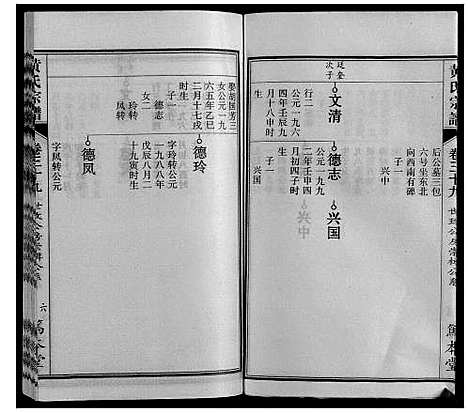 黄氏宗譜
卷三十九
篤本堂
后公墓三包
六号坐东北
向西南有碑
子一
兴中
兴国
兴中
德志
公元一九九
二年壬申四
月初四子时
生
子一
兴国
廷奎
次子
文清
行二
公元一九六
四年壬辰九
月十八申时
生
娶胡国芳三
女公元一九
六五年乙巳
二月十七戌
时生
子一
德志
女二
玲转
凤转
德玲
字玲转公元
一九八八年
戊辰八月二
十九寅时生
德凤
字凤转公元
黄氏宗譜
卷三十九
六
篤本堂